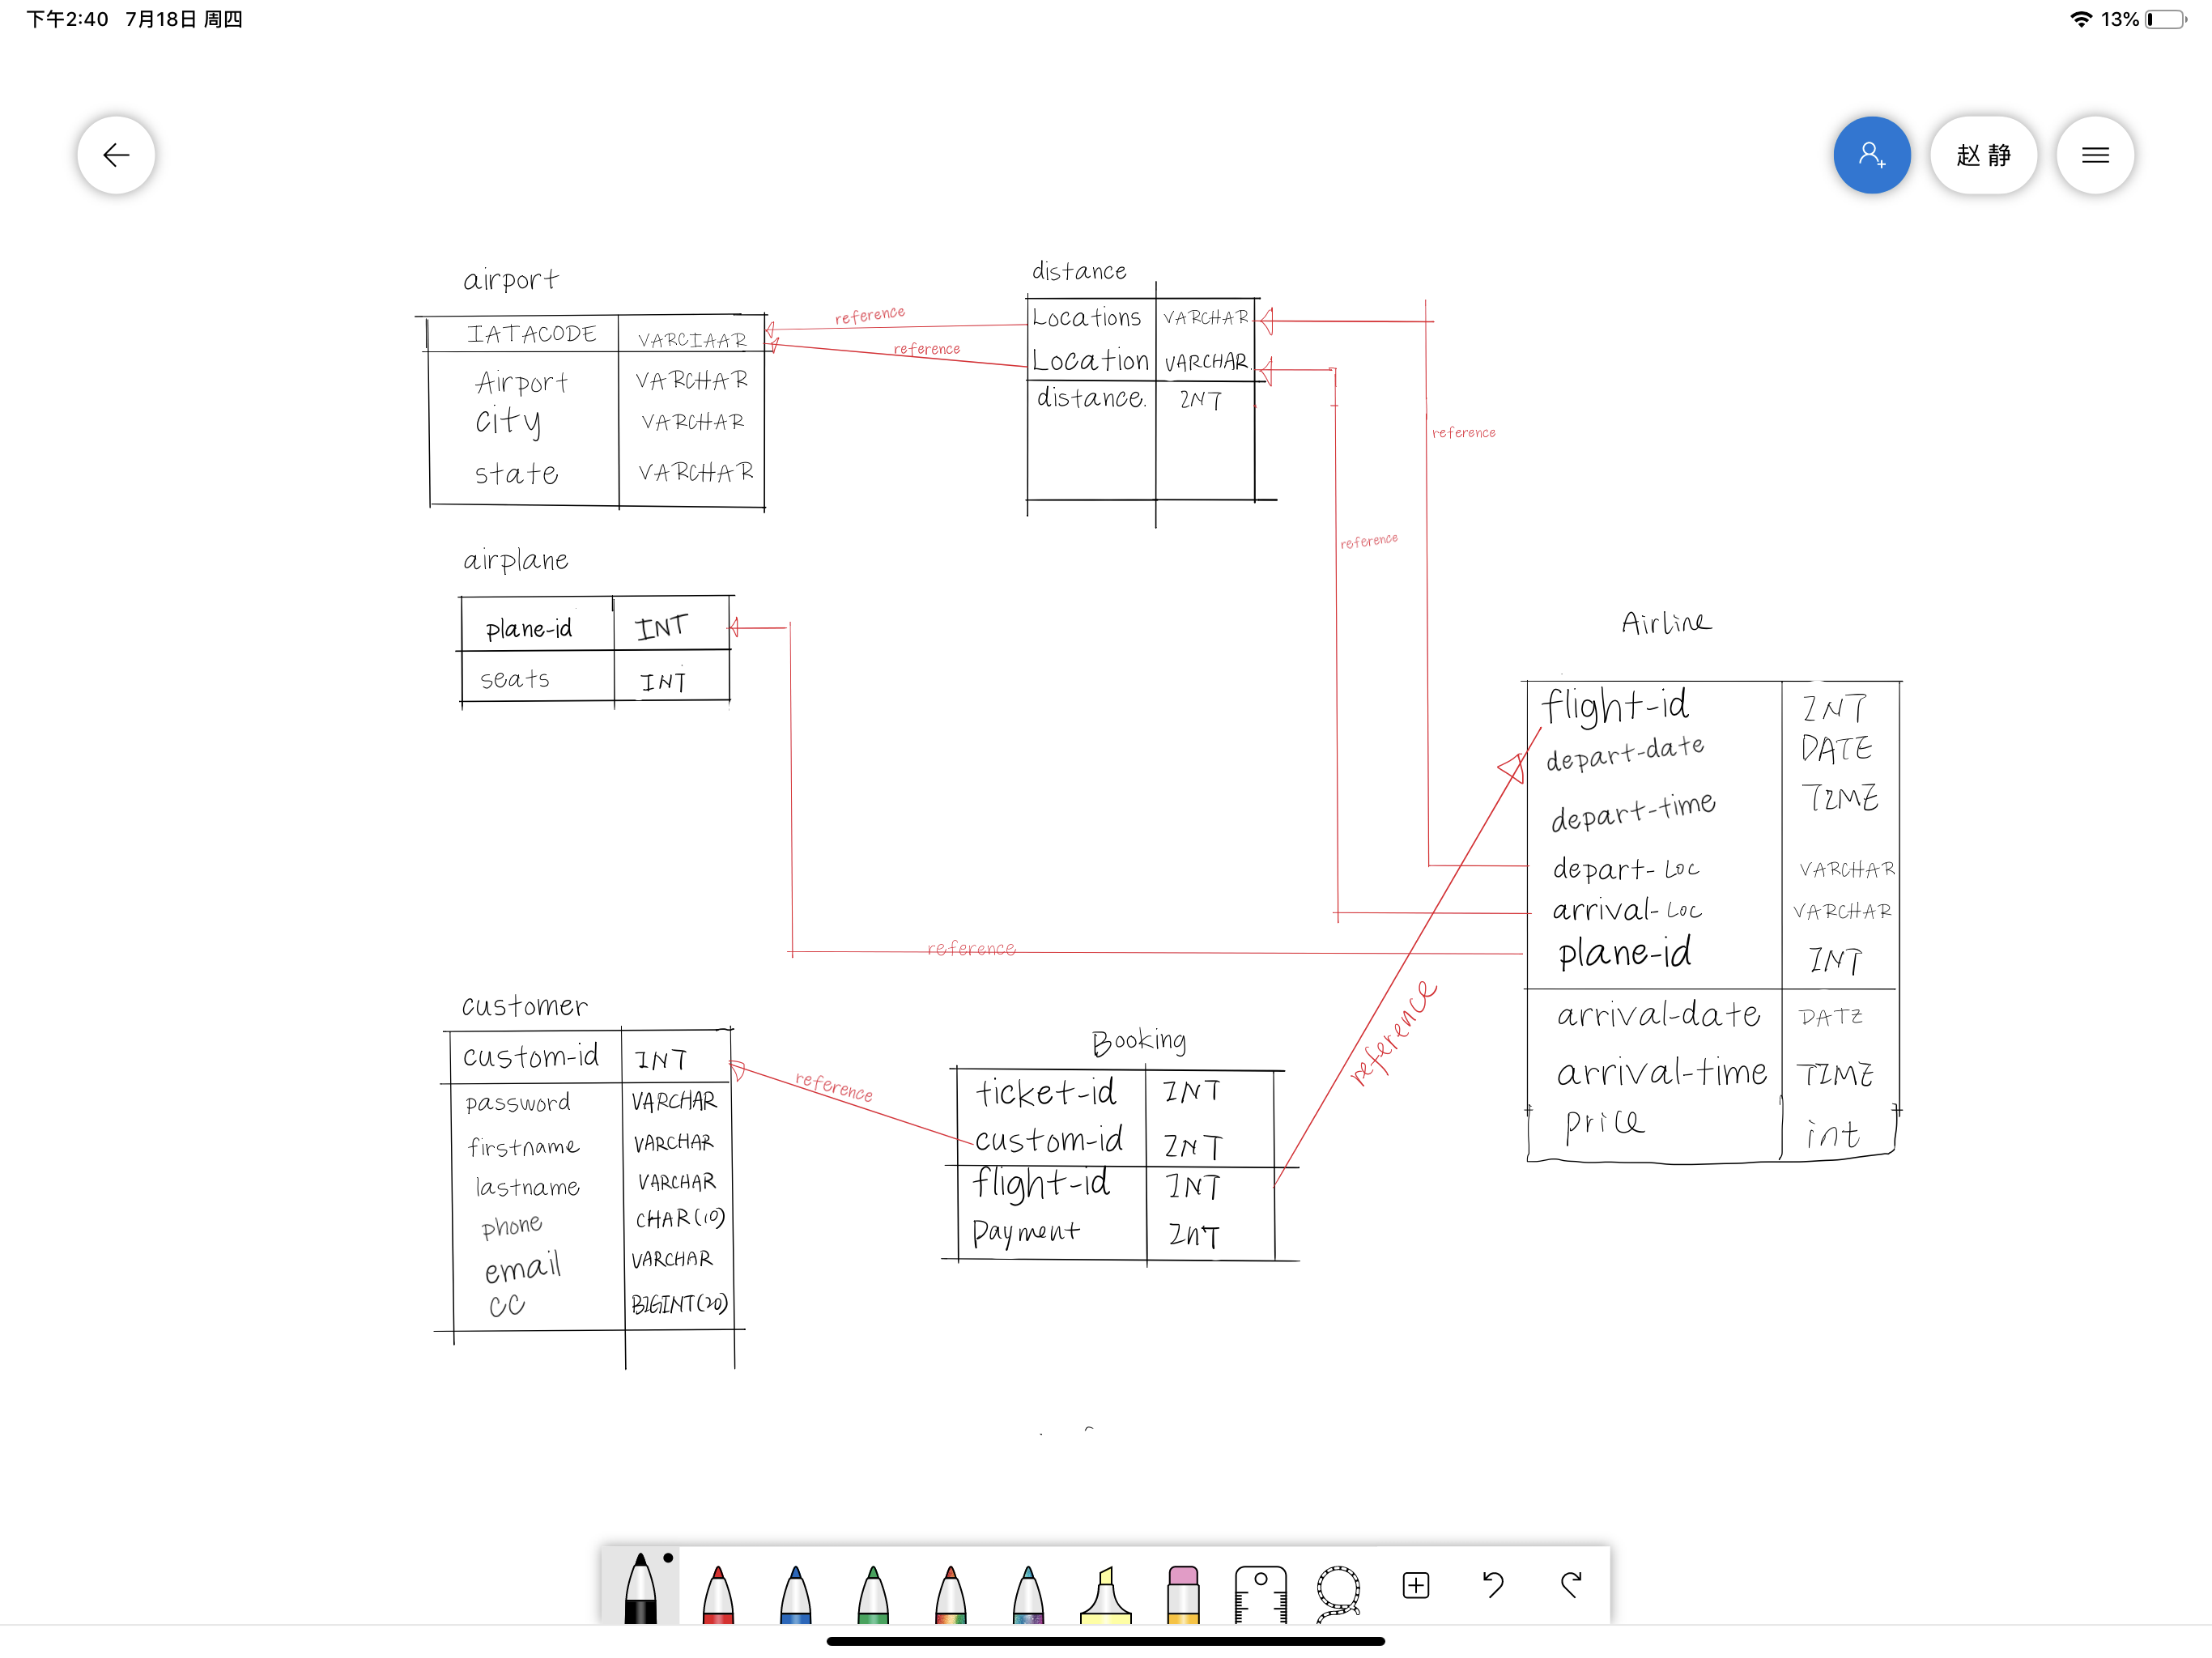 下午2:40 7月18日 周四
13%
赵 静
airport
IATACODE VARCIAAR
Airport VARCHAR
city VARCHAR
state VARCHAR
reference
reference
distance
Locations VARCHAR
Location VARCHAR.
distance. INT
reference
reference
airplane
plane-id INT
seats INT
Airline
flight-id INT
depart-date DATE
depart-time TIME
depart-Loc VARCHAR
arrival-Loc VARCHAR
plane-id INT
arrival-date DATE
arrival-time TIME
price int
reference
reference
customer
custom-id INT
password VARCHAR
firstname VARCHAR
lastname VARCHAR
phone CHAR(10)
email VARCHAR
CC BIGINT(20)
reference
Booking
ticket-id INT
custom-id INT
flight-id INT
Payment InT